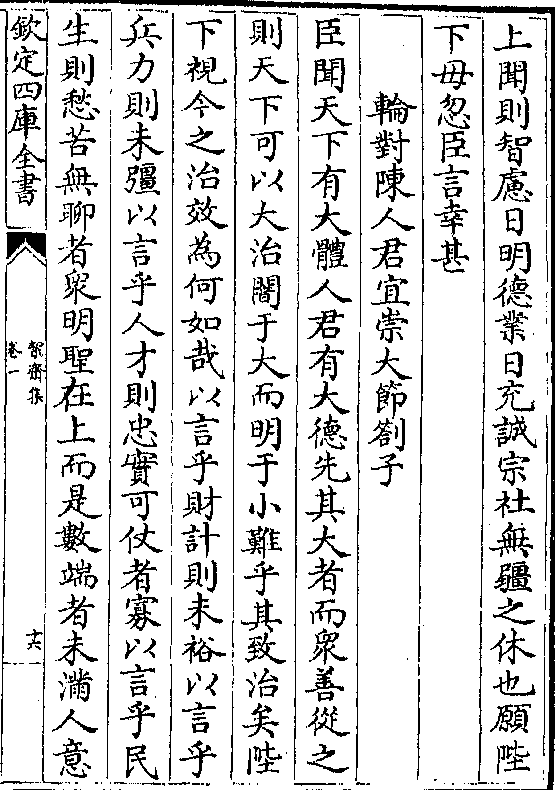 上聞則智慮日明德業日充誠宗社無疆之休也願陛
下毋忽臣言幸甚
輪對陳人君宜崇大節劄子
臣聞天下有大體人君有大德先其大者而衆善從之
則天下可以大治闇于大而明于小難乎其致治矣陛
下視今之治效為何如哉以言乎財計則未裕以言乎
兵力則未彊以言乎人才則忠實可仗者寡以言乎民
生則愁苦無聊者衆明聖在上而是數端者未滿人意
欽定四庫全書
絜齋集
卷一
十六